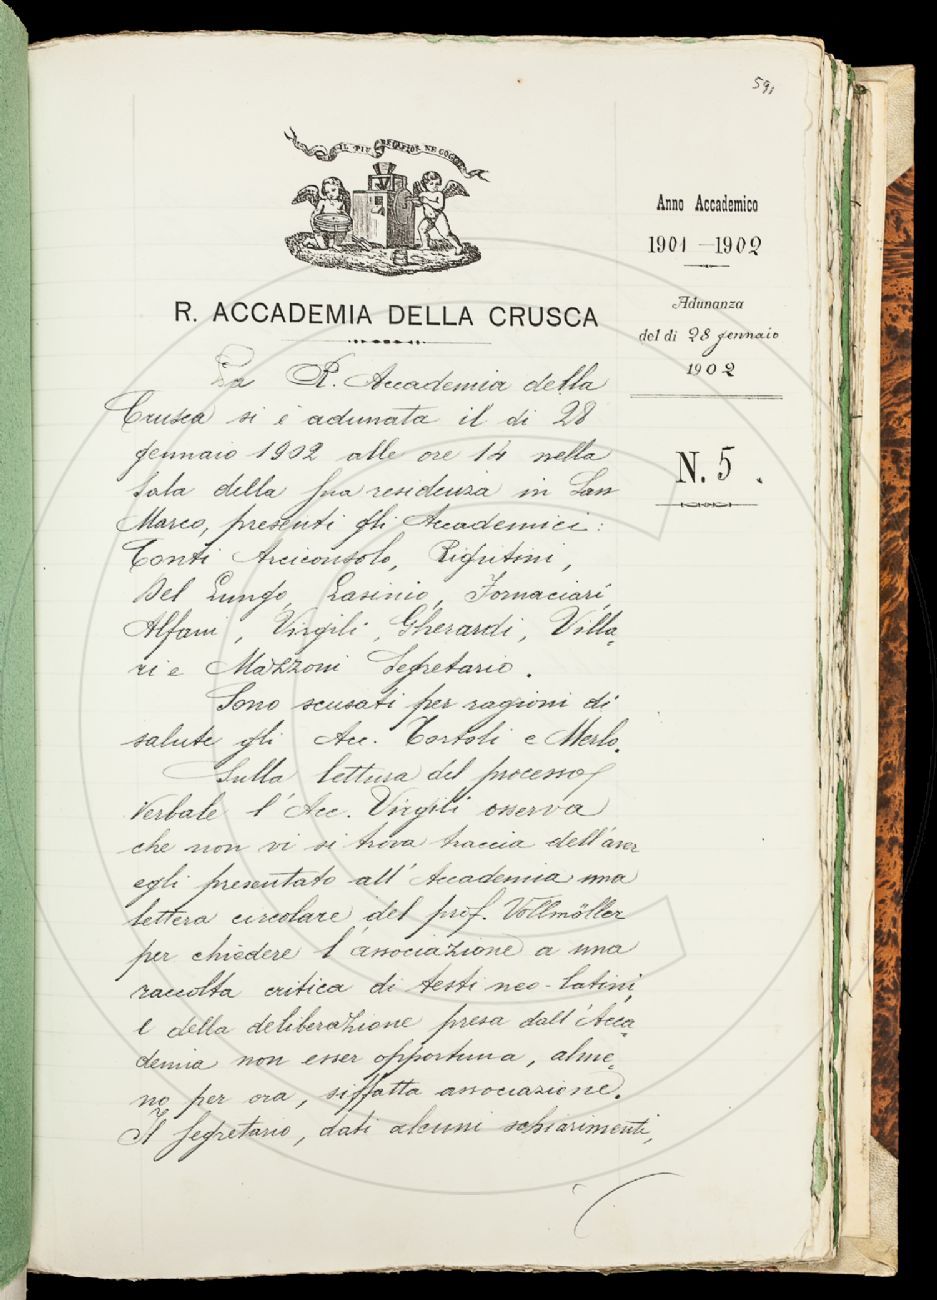 591
IL PIÙ BEL FIOR NE COGLIE
Anno Accademico
1901-1902
Adunanza
del dì 28 gennaio
1902
N. 5.
R. ACCADEMIA DELLA CRUSCA
La R. Accademia della
Crusca si è adunata il dì 28
gennaio 1902 alle ore 14 nella
Sala della sua residenza in San
Marco, presenti gli Accademici:
Conti Arciconsolo, Rigutini,
Del Lungo, Lasinio, Fornaciari,
Alfani, Virgili, Gherardi, Villa-
ri e Mazzoni Segretario.
Sono scusati per ragioni di
salute gli Acc. Tortoli e Merlo.
Sulla lettura del processo
Verbale l'Acc. Virgili osserva
che non vi si trova traccia dell'aver
egli presentato all'Accademia una
lettera circolare del prof. Vollmöller
per chiedere l'associazione a una
raccolta critica di testi neo-latini,
e della deliberazione presa dall'Acca-
demia non esser opportuna, alme-
no per ora, siffatta associazione.
Il Segretario, dati alcuni schiarimenti,